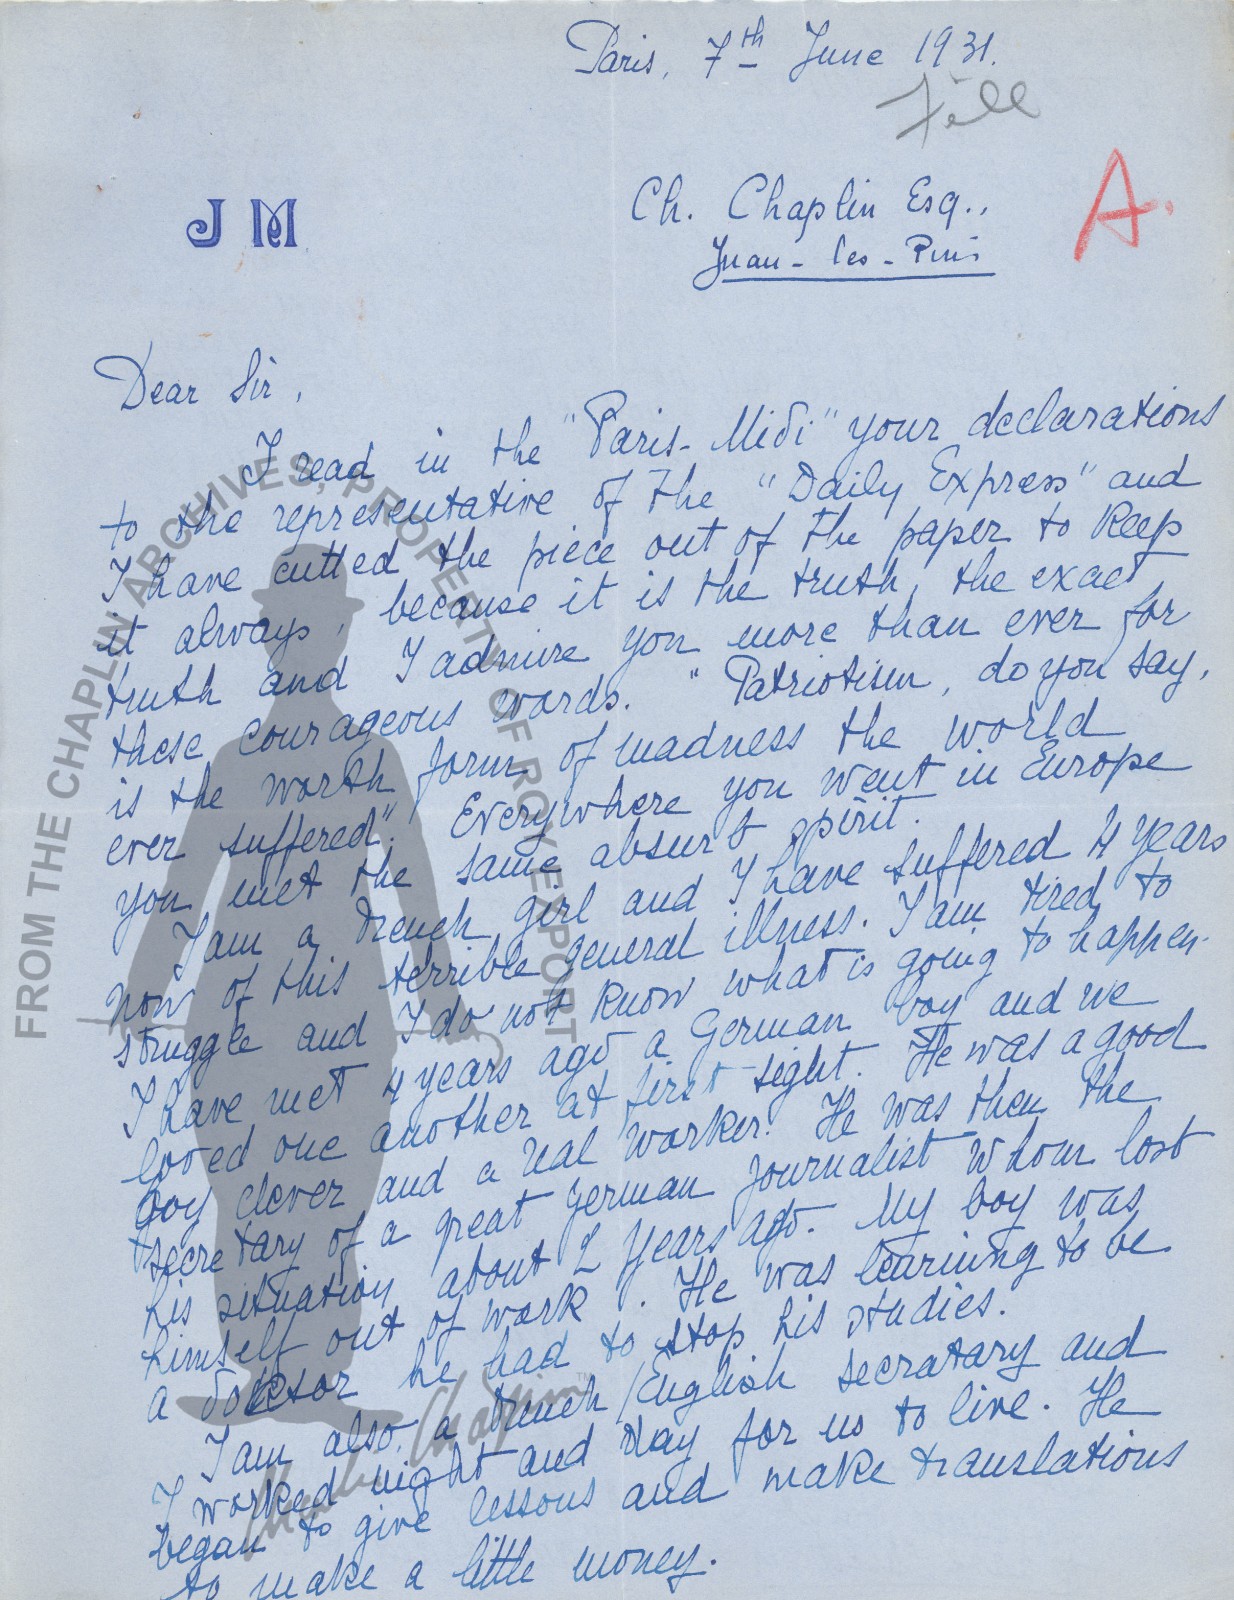 Paris, 7th June 1931.
File
A.
J M
Ch. Chaplin Esq.,
Juan-les-Pins
Dear Sir,
I read in the "Paris-Midi" your declarations
to the representative of the "Daily Express" and
I have cutted the piece out of the paper to keep
it always, because it is the truth, the exact
truth and I admire you more than ever for
these courageous words. "Patriotism, do you say,
is the worth form of madness the world
ever suffered". Everywhere you went in Europe
you met the same absurb spirit.
I am a French girl and I have suffered 4 years
now of this terrible general illness. I am tired to
struggle and I do not know what is going to happen.
I have met 4 years ago a German boy and we
loved one another at first sight. He was a good
boy clever and a real worker. He was then the
secretary of a great German journalist whom lost
his situation about 2 years ago. My boy was
himself out of work. He was learning to be
a doctor he had to stop his studies.
I am also, a French/English secratary and
I worked night and day for us to live. He
began to give lessons and make translations
to make a little money.
FROM THE CHAPLIN ARCHIVES, PROPERTY OF ROY EXPORT
Charlie Chaplin™